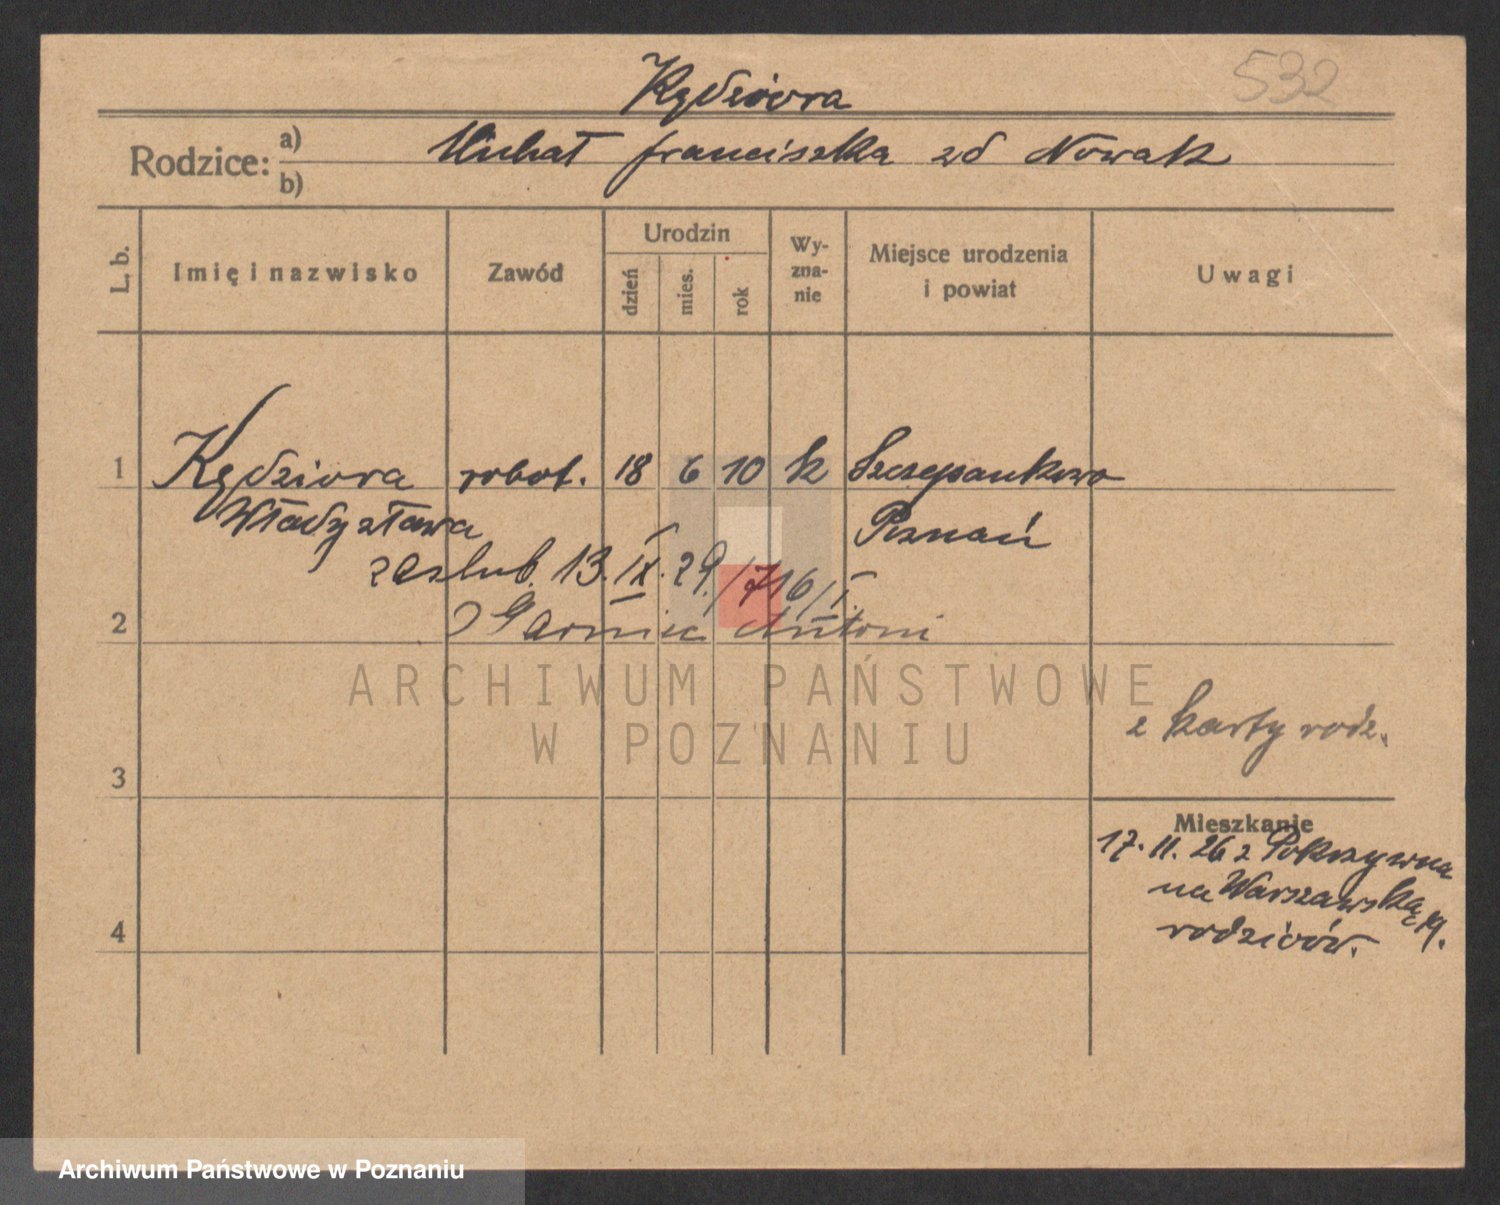 532
Kędziora
Rodzice: a) Michał Franciszka zd Nowak
b)
L. b. Imię i nazwisko Zawód Urodzin dzień mies. rok Wy-zna-nie Miejsce urodzenia i powiat Uwagi
1 Kędziora robot. 18 6 10 k Szczepankowo
Władysława Poznań
zaślub. 13. IX. 29. /716/I.
2 Antoni
ARCHIWUM PAŃSTWOWE
W POZNANIU
z karty rodz.
3
Mieszkanie
17. 11. 26 z Pokrzywna
na Warszawską 19.
4 rodziców.
Archiwum Państwowe w Poznaniu